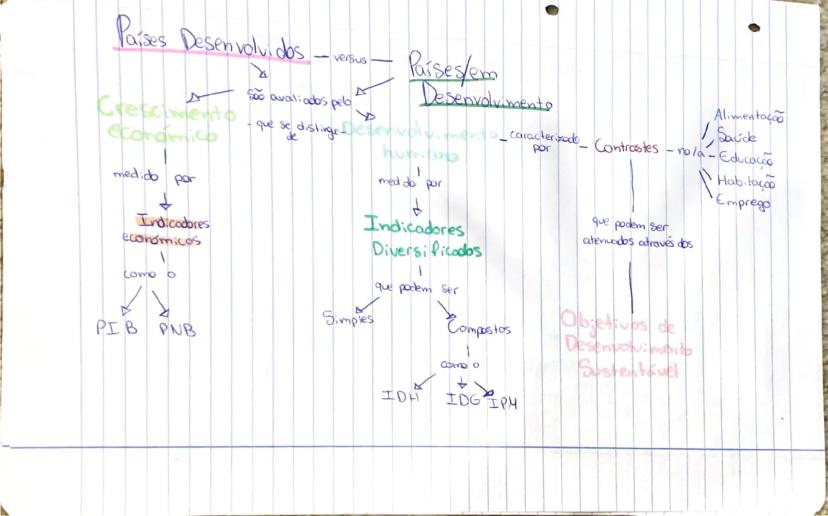 Países Desenvolvidos - versus - Países/em
Desenvolvimento
são avaliados pelo
Crescimento
económico
- que se distingue-
de
Desenvolvimento
humano
- caracterizado
por
- Contrastes - no/a -
Alimentação
Saúde
Educação
Habitação
Emprego
medido por
Indicadores
económicos
como o
PIB PNB
medido por
Indicadores
Diversificados
que podem ser
Simples
Compostos
como o
IDH IDG IPM
que podem ser
atenuados através dos
Objetivos de
Desenvolvimento
Sustentável